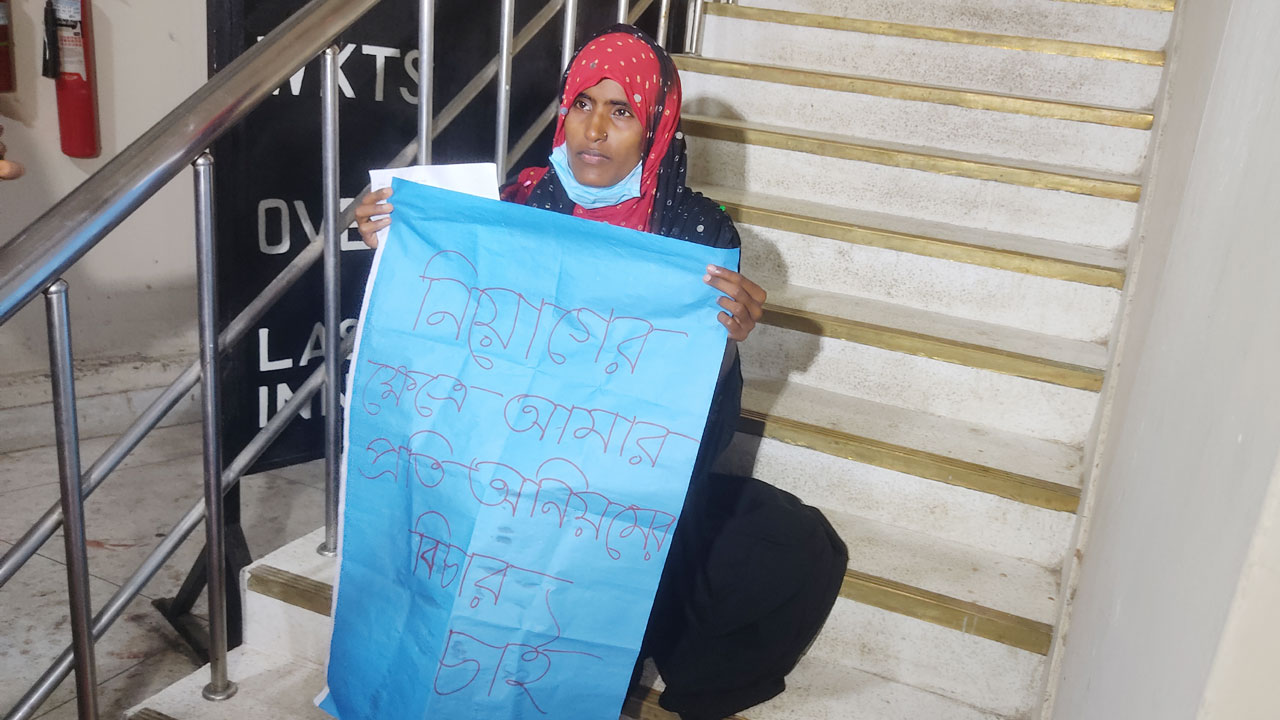 WKTS
OVE
LAS
INN
নিয়োগের
ক্ষেত্রে আমার
প্রতি অনিয়মের
বিচার
চাই